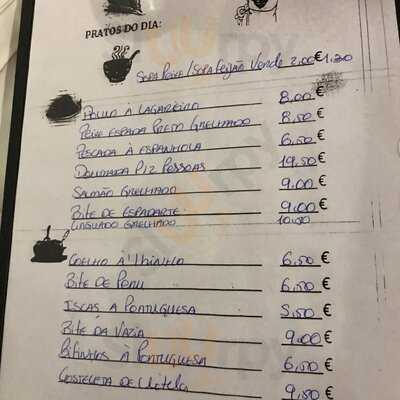 PRATOS DO DIA:
SOPA PEIXE / SOPA FEIJÃO VERDE 2.00€ 1.20
POLVO À LAGAREIRO 8.00€
PEIXE ESPADA PRETO GRELHADO 8.50€
PESCADA À ESPANHOLA 6.50€
DOURADA P/2 PESSOAS 19.50€
SALMÃO GRELHADO 9.00€
BIFE DE ESPADARTE 9.00€
LINGUADO GRELHADO 10.00
COELHO À 6.50€
BIFE DE PERU 6.50€
ISCAS À PORTUGUESA 5.50€
BIFE DA VAZIA 9.00€
BIFINHOS À PORTUGUESA 6.50€
COSTELETA DE VITELA 9.80€